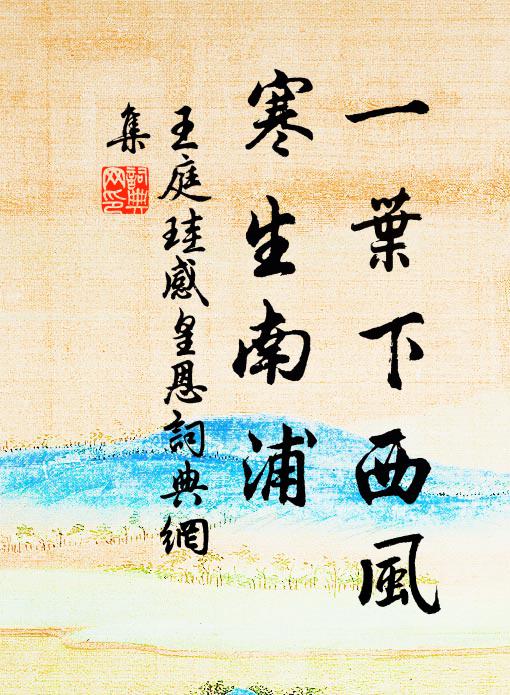 一葉下西風
寒生南浦
王庭珪感皇恩詞典網
集
詞典
网印